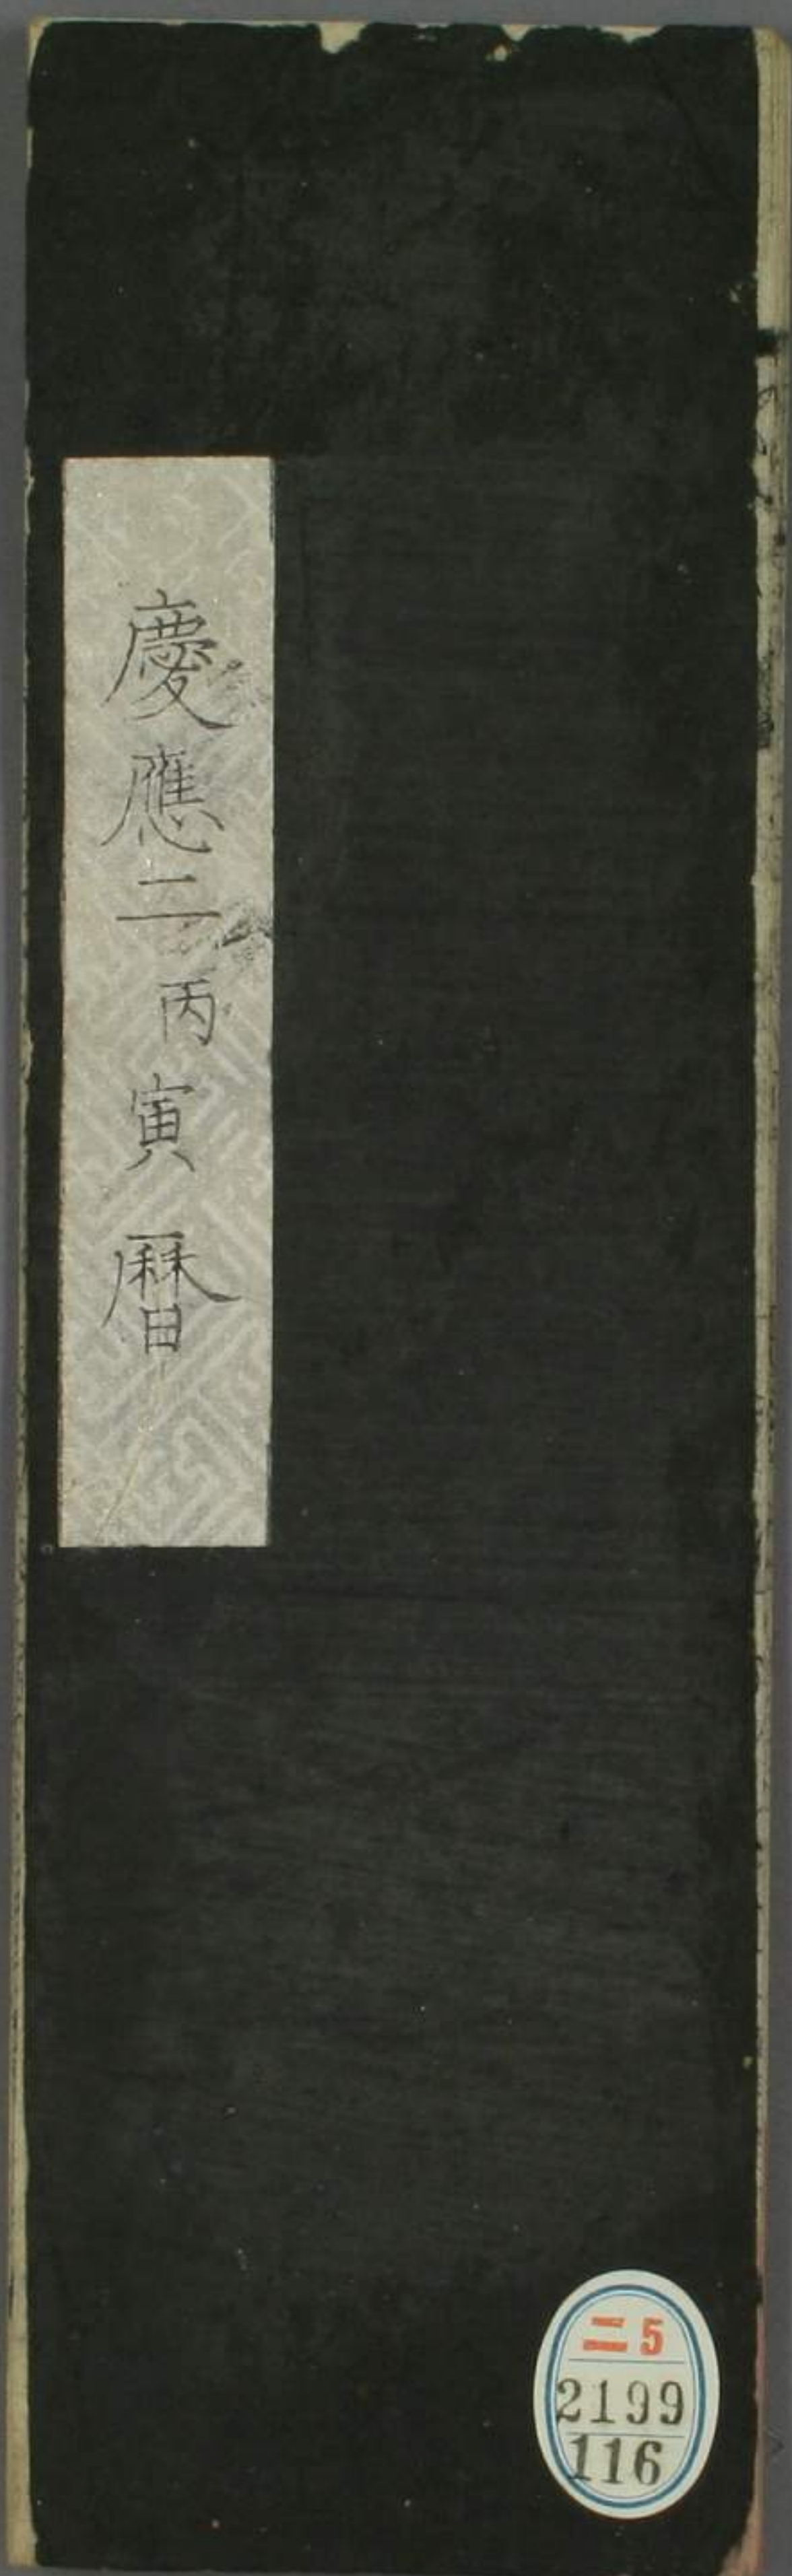 慶應二丙寅暦
ニ5
2199
116